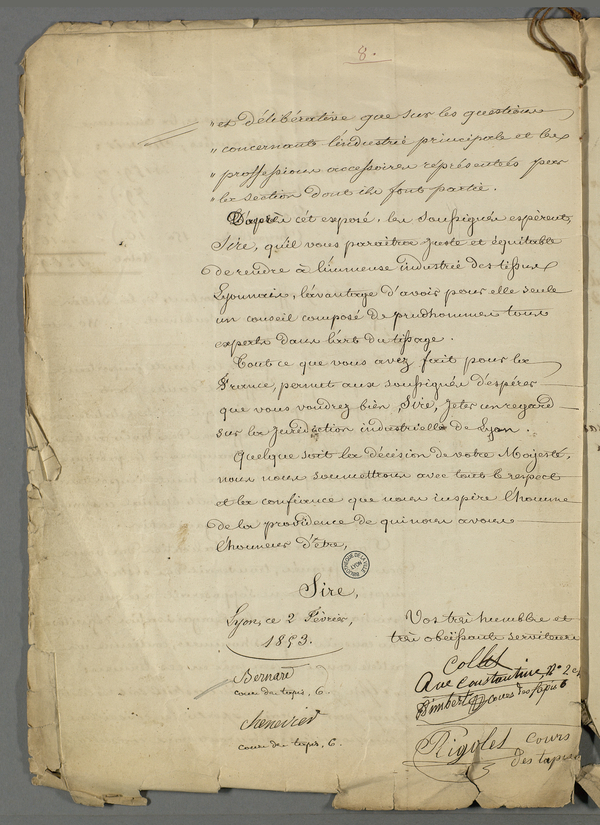 8.
" et délibérative que sur les questions
" concernant l'industrie principale et les
" proffessions accessoires représentés par
" la section dont ils font partie.
D'après cét exposé, les soussignés espèrent,
Sire, qu'il vous paraitra juste et équitable
de rendre à l'immense industrie des tissus
Lyonnais, l'avantage d'avoir pour elle seule
un conseil composé de prudhommes tous
experts dans l'arts du tissage.
Tout ce que vous avez fait pour la
France, permet aux soussignés d'espérer
que vous voudrez bien, Sire, jeter un regard
sur la juridiction industrielle de Lyon.
Quelque soit la décision de votre Majesté,
nous nous soumettrons avec tout le respect
et la confiance que nous inspire l'homme
de la providence de qui nous avons
l'honneur d'être,
BIBLIOTHEQUE DE LA VILLE
LYON
Sire,
Lyon, ce 2 Février,
1853.
Vos très humble et
très obéissants serviteurs
Bernard
cour des tapis, 6.
Chenevier
cour des tapis, 6.
Collet
Rue Constantine, N° 2
Bimbert cours des tapis 6
Rigolet cours
des tapis